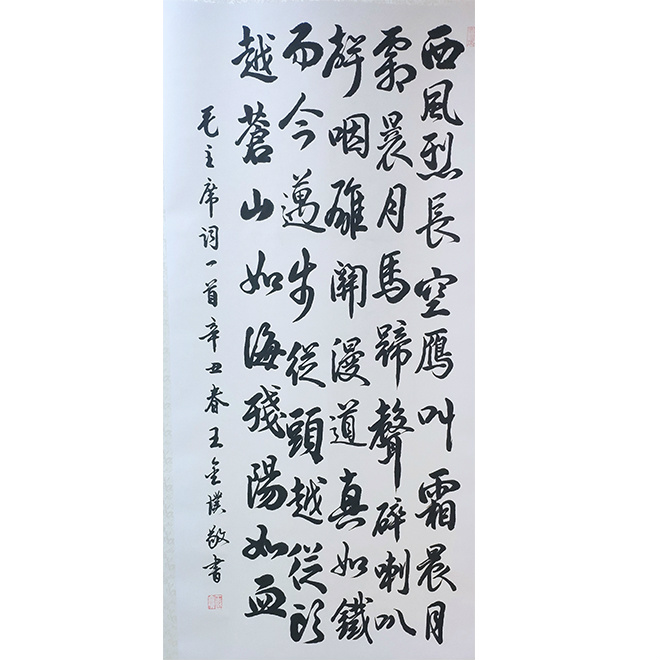 西風烈長空鴈叫霜晨月
霜晨月馬蹄聲碎喇叭
聲咽雄關漫道真如鐵
而今邁步從頭越從頭
越蒼山如海殘陽如血
毛主席詞一首辛丑春王金璞敬書